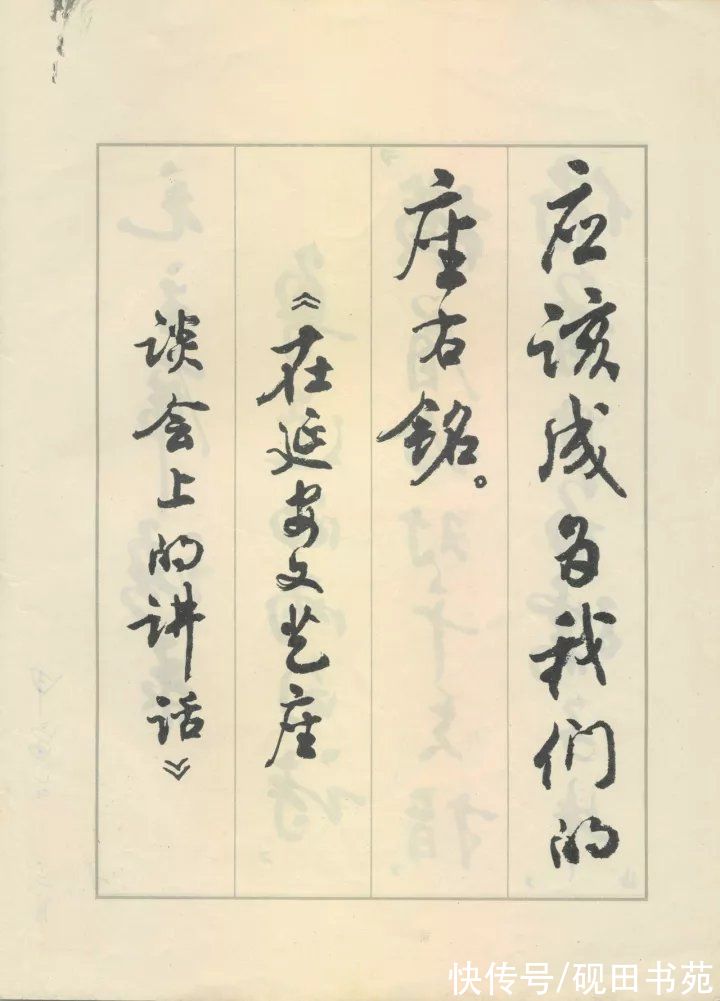 应该成为我们的
座右铭。
《在延安文艺座
谈会上的讲话》
快传号/砚田书苑